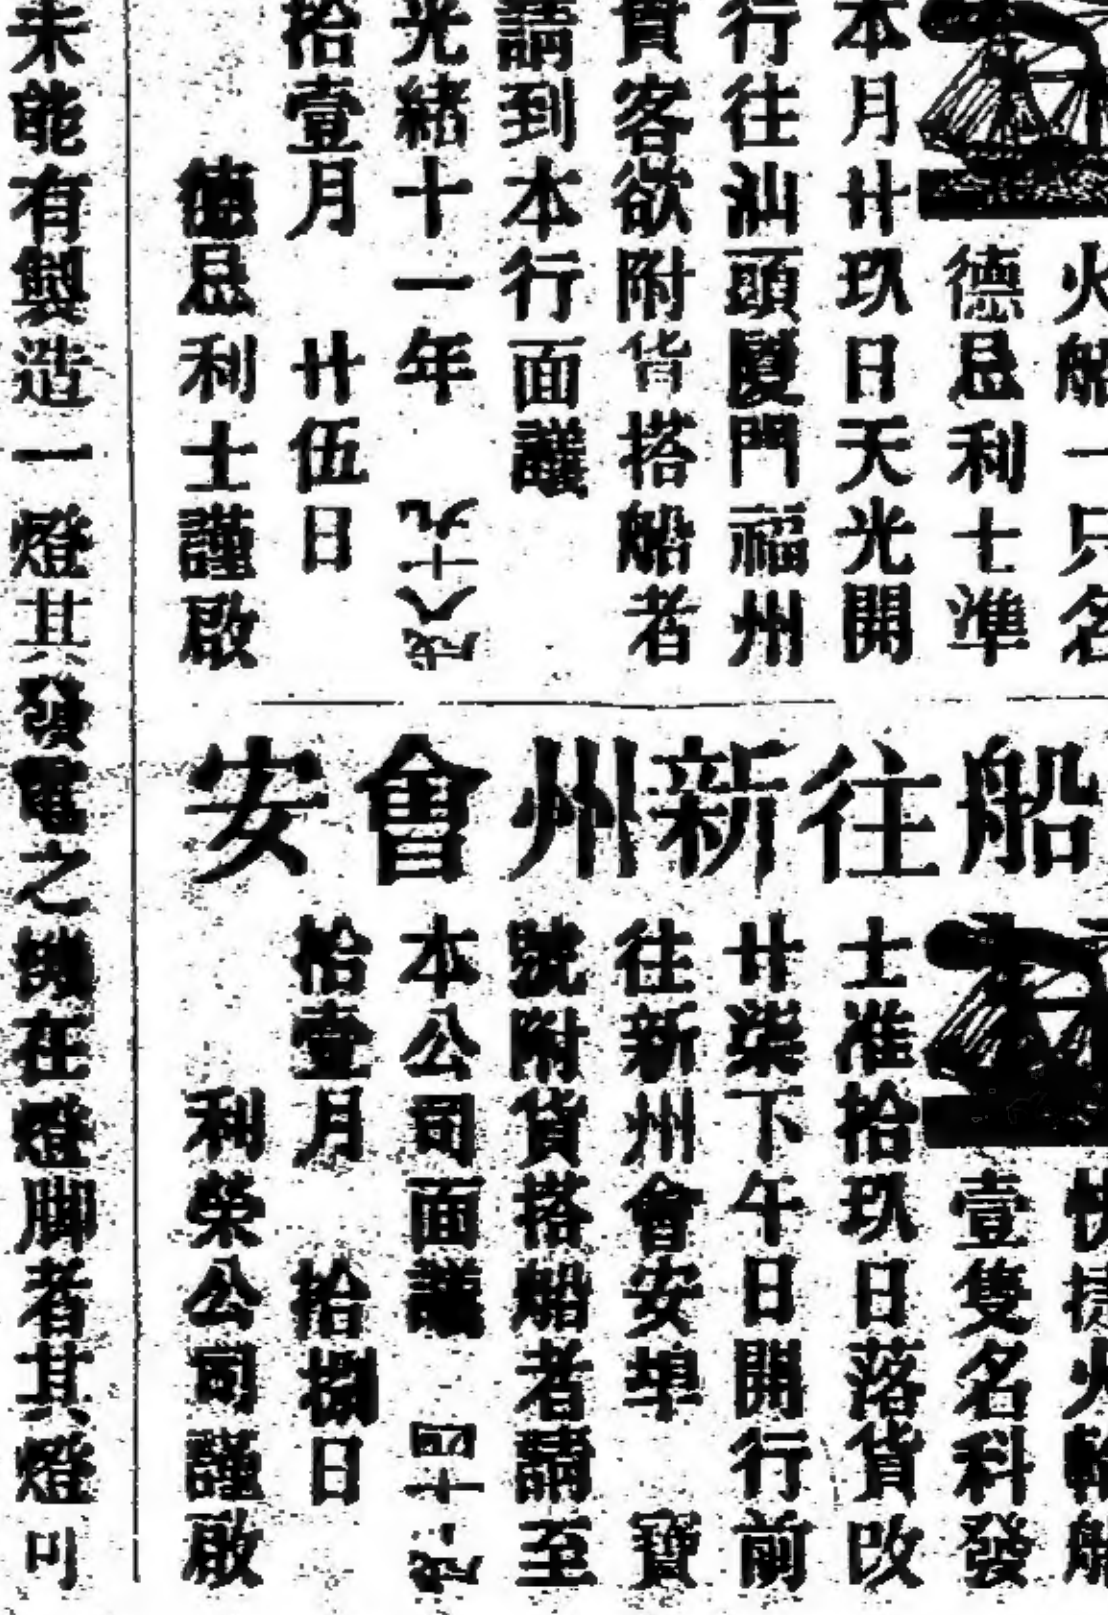 火船一只名
德忌利士準
本月廿玖日天光開
行往汕頭厦門福州
貴客欲附貨搭船者
請到本行面議
光緒十一年
拾壹月 廿伍日
德忌利士謹啟
船往新州會安
快捷火輪船
壹隻名科發
士准拾玖日落貨改
廿柒下午日開行前
往新州會安埠 寶
號附貨搭船者請至
本公司面議
拾壹月 拾捌日
利榮公司謹啟
未能有製造一燈其發電之機在燈脚者其燈可